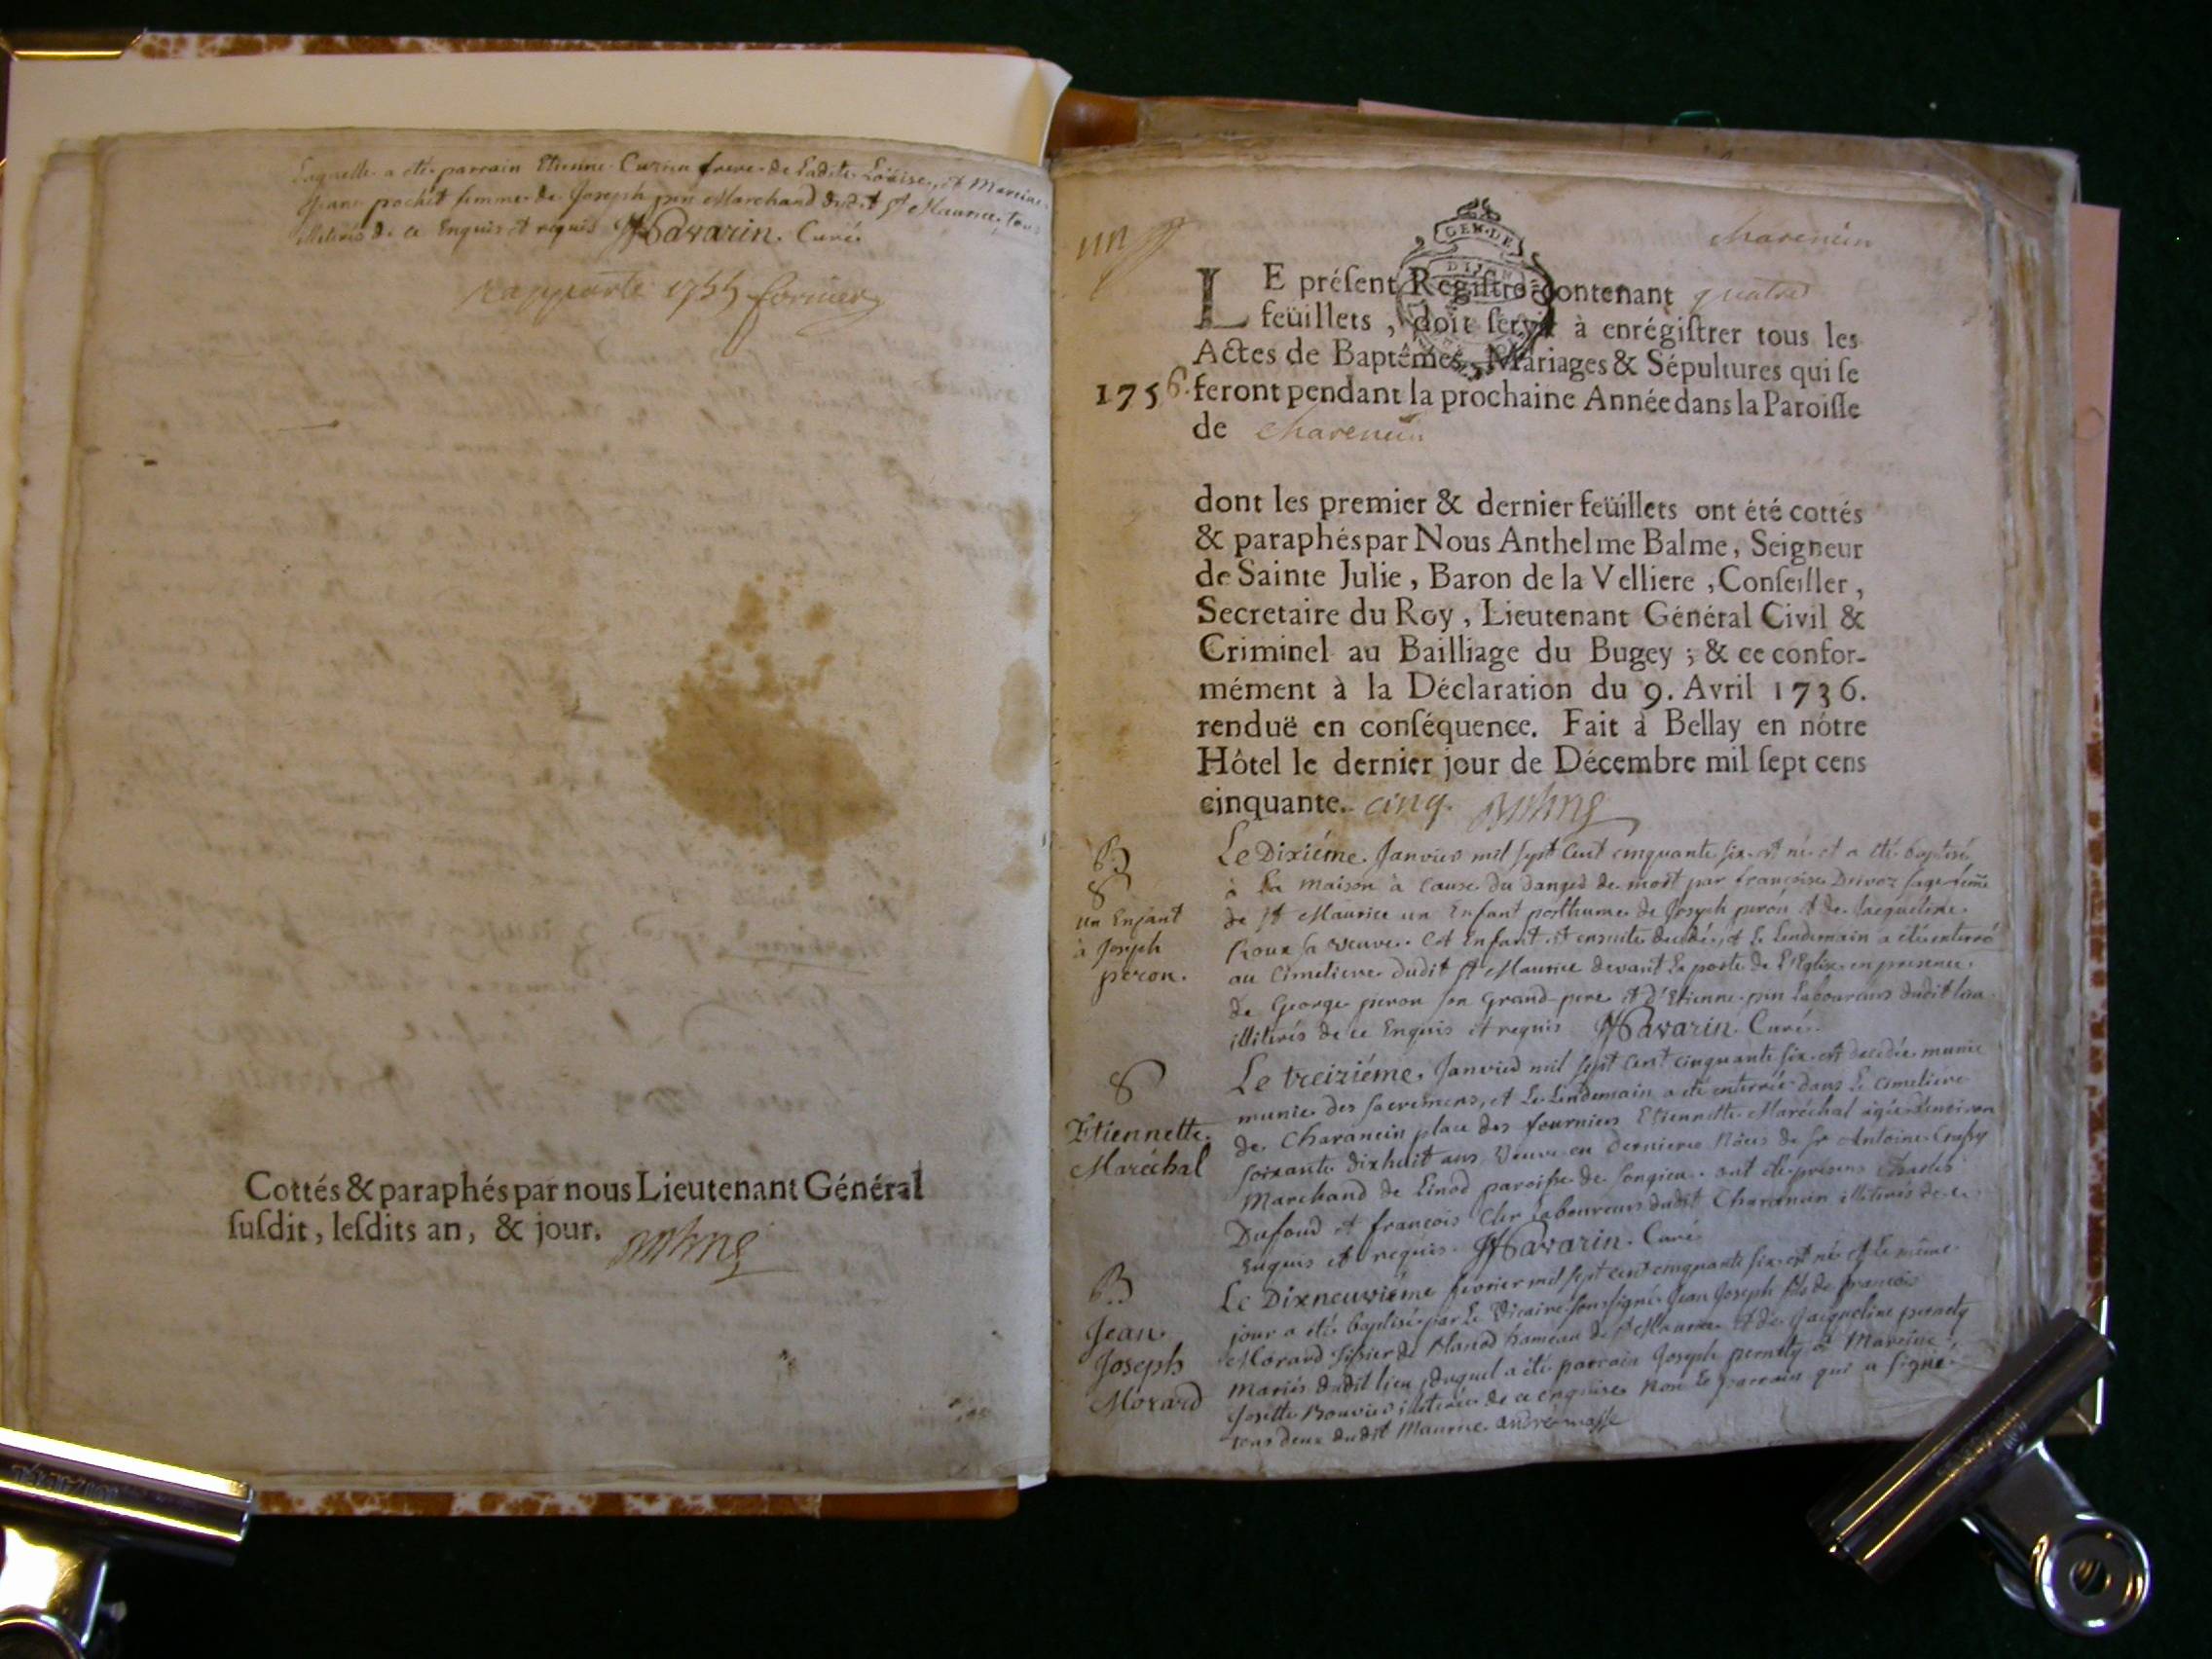 Laquelle a été parrain Etienne Curien frere de Ladite Loüise, et Marraine
pochet femme de Joseph pin Marchand dudit St Maurice, tous
illiterés de ce Enquis et requis Navarin. Curé
rapporté 1755
Cottés & paraphés par nous Lieutenant Général
ſuſdit, leſdits an, & jour.
un
Charencin
GEN. DE
DIJON
LE préſent Regiſtre contenant quatre
feüillets, doit ſervir à enrégiſtrer tous les
Actes de Baptêmes, Mariages & Sépultures qui ſe
1756. feront pendant la prochaine Année dans la Paroiſſe
de Charencin
dont les premier & dernier feüillets ont été cottés
& paraphés par Nous Anthelme Balme, Seigneur
de Sainte Julie, Baron de la Velliere, Conſeiller,
Secretaire du Roy, Lieutenant Général Civil &
Criminel au Bailliage du Bugey; & ce confor-
mément à la Déclaration du 9. Avril 1736.
renduë en conſéquence. Fait à Bellay en nôtre
Hôtel le dernier jour de Décembre mil ſept cens
cinquante. cinq. Balme
B
S
un Enfant
à Joseph
peron.
Le Dixiéme Janvier mil sept Cent cinquante six est né et a été baptisé
à La maison à cause du danger de mort par françoise Drivoz sage femme
de St Maurice un Enfant posthume de Joseph peron et de Jacqueline
Roux sa veuve. Cet Enfant est ensuite decedé, et Le Lendemain a été enterré
au Cimetiere dudit St Maurice devant La porte de L'Eglise en presence
de George peron son Grand-pere et d'Etienne pin Laboureurs dudit lieu
illiterés de ce Enquis et requis Navarin. Curé.
S
Etiennette
Maréchal
Le treiziéme Janvier mil sept cent cinquante six est decedée munie
munie des sacremens, et Le Lendemain a été enterrée dans Le cimetiere
de Charancin place des fourniers Etiennette Maréchal agée d'environ
soixante dixhuit ans Veuve en Dernieres Nôces de Sr Antoine
Marchand de Linod paroisse de Songieu. ont été présens Charles
Dufour et françois Cler Laboureurs dudit Charancin illiterés de ce
Enquis et requis. Navarin. Curé
B
Jean
Joseph
Morard
Le Dixneuviéme fevrier mil sept cent cinquante six est né et Le même
jour a été baptisé par Le Vicaire soussigné Jean Joseph fils de françois
Morard Tissier de Blanod hameau de St Maurice et de Jacqueline pernety
Mariés dudit lieu, duquel a été parrain Joseph pernety et Marraine
Josette Bouvier illiterée de ce enquise Non Le parrain qui a signé
tous deux dudit Maurice. andré masse